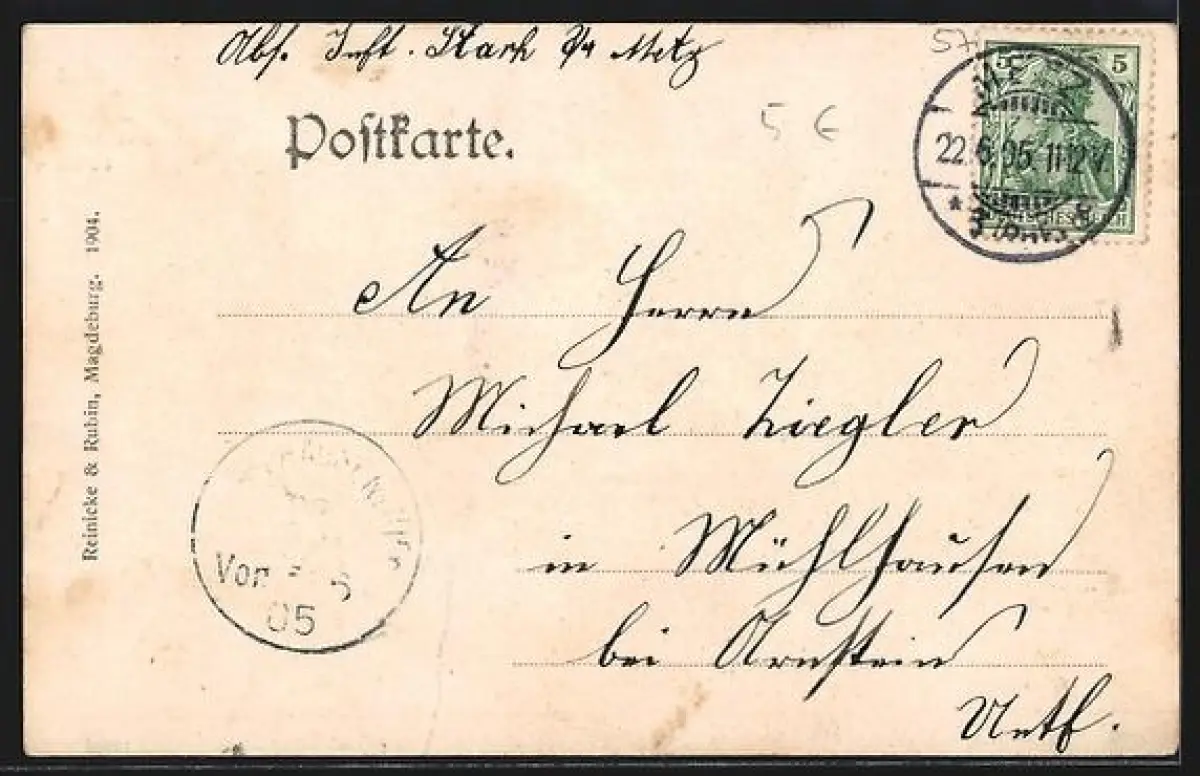 Abs. Inft. Stark 8/4 Metz
57
Postkarte.
5 €
5 5
METZ
22.6.05. 11-12 V.
* 3 (BHF) *
An Herrn
Michael Ziegler
in Mühlhausen
bei Arnstein
Untf.
Vor
05
Reinicke & Rubin, Magdeburg. 1904.